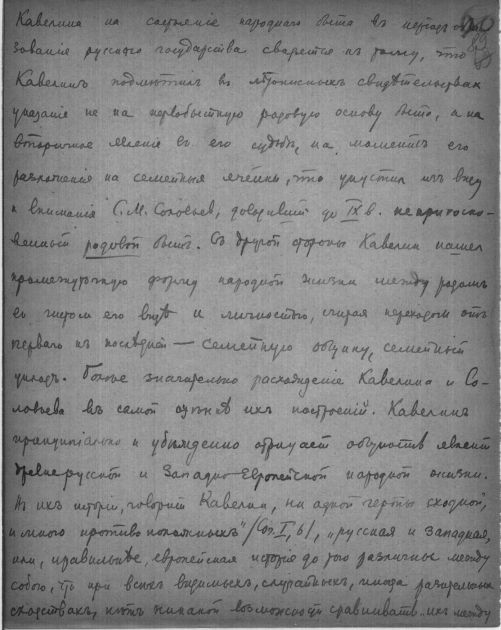 Кавелина на состояніе народнаго быта въ періодъ обра-
зованія русскаго государства сводится къ тому, что
Кавелинъ подмѣтилъ въ лѣтописныхъ свидѣтельствахъ
указаніе не на первобытную родовую основу быта, а на
вторичное явленіе въ его судьбѣ, на моментъ его
разложенія на семейныя ячейки, что упустилъ изъ виду
и вниманія С. М. Соловьевъ, доводившій до IX в. неприкосно-
венный родовой бытъ. Съ другой стороны Кавелин нашел
промежуточную форму народной жизни между родомъ
въ чистом его видѣ и личностью, считая переходом отъ
перваго къ последней — семейную общину, семейный
укладъ. Более значительно расхожденіе Кавелина и Со-
ловьева въ самой оцѣнкѣ ихъ построеній. Кавелинъ
принципіально и убежденно отрицает общность явленій
древнерусской и Западно-Европейской народной жизни.
Въ ихъ исторіи, говорит Кавелин, ни одной черты сходной,
и много противоположныхъ" /Соч. I, 6/, "русская и западная,
или, правильнѣе, европейская исторія до того различны между
собою, что при всѣхъ видимыхъ, случайныхъ, иногда разительных
сходствахъ, нѣтъ никакой возможности сравнивать ихъ между